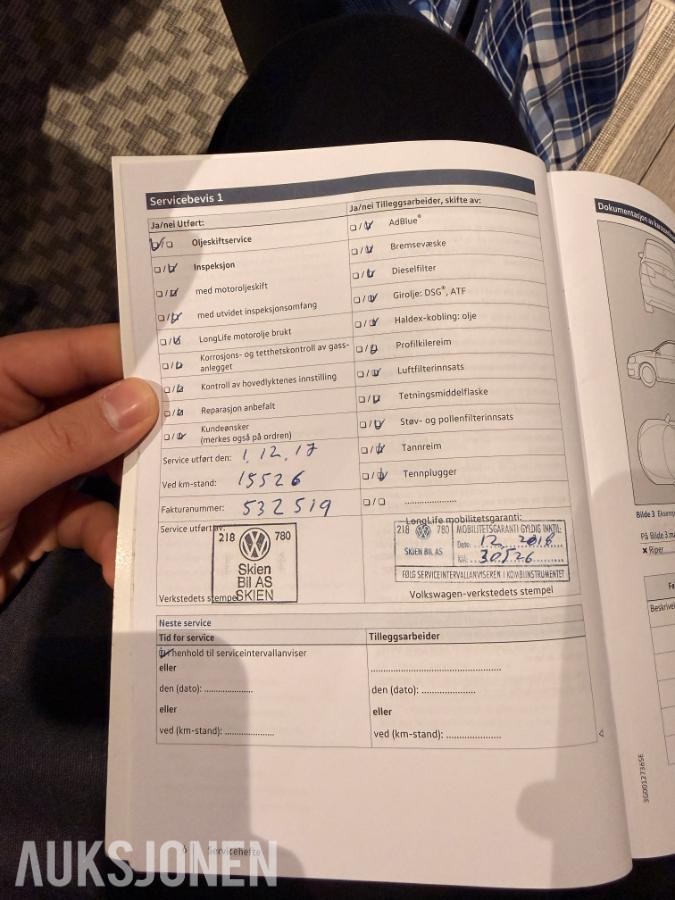 Servicebevis 1
Ja/nei Utført:
Oljeskiftservice
Inspeksjon
med motoroljeskift
med utvidet inspeksjonsomfang
LongLife motorolje brukt
Korrosjons- og tetthetskontroll av gass-
anlegget
Kontroll av hovedlyktenes innstilling
Reparasjon anbefalt
Kundeønsker
(merkes også på ordren)
Service utført den: 1.12.17
Ved km-stand: 15526
Fakturanummer: 532519
Service utført av:
218 780
Skien
Bil AS
SKIEN
Verkstedets stempel
Ja/nei Tilleggsarbeider, skifte av:
AdBlue®
Bremsevæske
Dieselfilter
Girolje: DSG®, ATF
Haldex-kobling: olje
Profilkilereim
Luftfilterinnsats
Tetningsmiddelflaske
Støv- og pollenfilterinnsats
Tannreim
Tennplugger
LongLife mobilitetsgaranti:
218 780 MOBILITETSGARANTI GYLDIG INNTIL:
Dato: 12 2018
SKIEN BIL AS
Km. 30526
FØLG SERVICEINTERVALLANVISEREN I KOMBIINSTRUMENTET
Volkswagen-verkstedets stempel
Neste service
Tid for service
I henhold til serviceintervallanviser
eller
den (dato):
eller
ved (km-stand):
Tilleggsarbeider
den (dato):
eller
ved (km-stand):
6 Servicehefte
Dokumentasjon av
Bilde 3
På Bilde 3
x Riper
3G0012736SE
AUKSJONEN